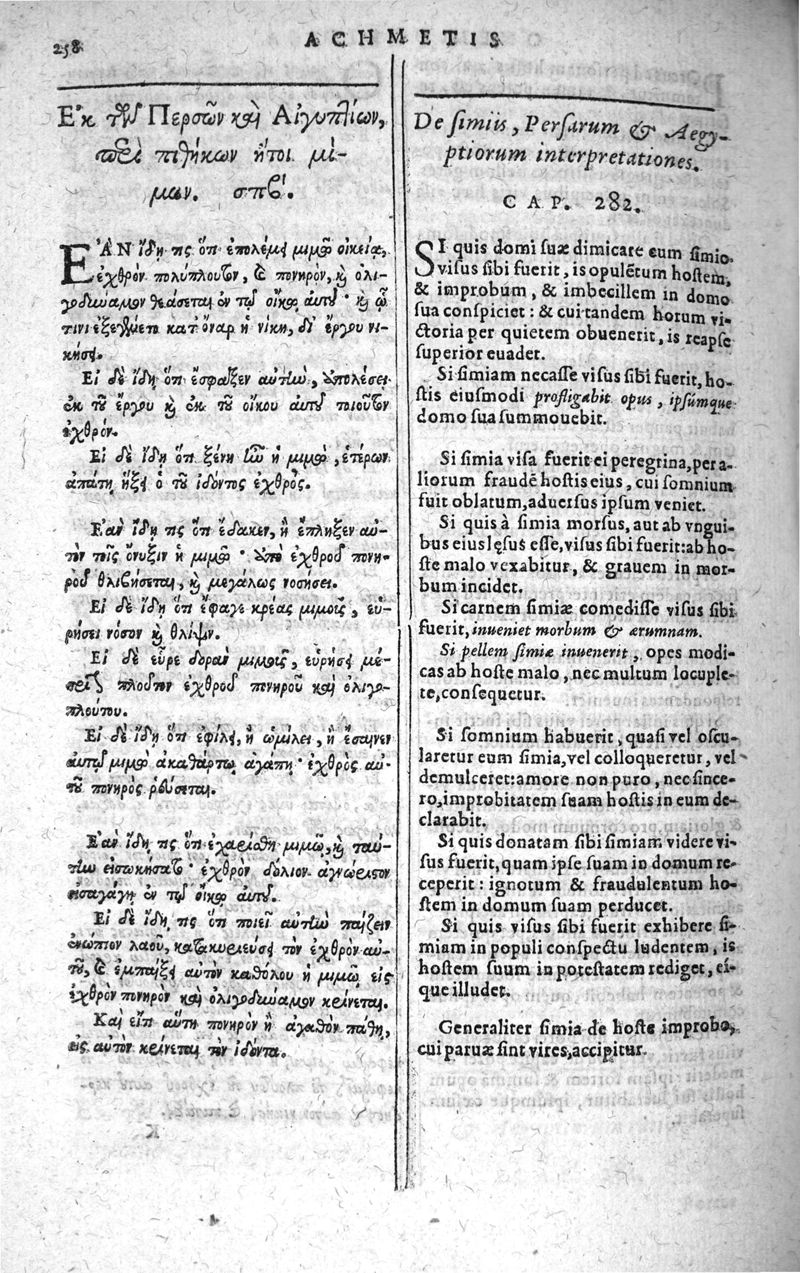 258
ACHMETIS
Ἐκ τῶν Περσῶν καὶ Αἰγυπτίων,
περὶ πιθήκων ἤτοι μι-
μων. σπβʹ.
ἘΑΝ ἴδῃ τις ὅτι ἐπολέμει μιμὼ οἰκεία,
ἐχθρὸν πολύπλουτον, καὶ πονηρὸν, καὶ ὀλι-
γοδύναμον θεάσεται ἐν τῷ οἴκῳ αὐτοῦ· καὶ ᾧ
τινι ἐξεγένετο κατ' ὄναρ ἡ νίκη, δι' ἔργου νι-
κήσει.
Εἰ δὲ ἴδῃ ὅτι ἔσφαξεν αὐτὴν, ἀπολέσει
ἐκ τοῦ ἔργου καὶ ἐκ τοῦ οἴκου αὐτοῦ τοιοῦτον
ἐχθρόν.
Εἰ δὲ ἴδῃ ὅτι ξένη ἦν ἡ μιμὼ, ἑτέρων
ἀπάτῃ ἥξει ὁ τοῦ ἰδόντος ἐχθρός.
Ἐὰν ἴδῃ τις ὅτι ἔδακεν, ἢ ἔπληξεν αὐ-
τὸν τοῖς ὄνυξιν ἡ μιμὼ· ὑπὸ ἐχθροῦ πονη-
ροῦ θλιβήσεται, καὶ μεγάλως νοσήσει.
Εἰ δὲ ἴδῃ ὅτι ἔφαγε κρέας μιμοῦς, εὑ-
ρήσει νόσον καὶ θλίψιν.
Εἰ δὲ εὗρε δορὰν μιμοῦς, εὑρήσει μέ-
πλοῦτον ἐχθροῦ πονηροῦ καὶ ὀλιγο-
πλούτου.
Εἰ δὲ ἴδῃ ὅτι ἐφίλει, ἢ ὡμίλει, ἢ ἔσαινεν
αὐτῷ μιμὼ ἀκαθάρτῳ ἀγάπῃ· ἐχθρὸς αὐ-
τοῦ πονηρὸς
Ἐὰν ἴδῃ τις ὅτι ἐχαρίσθη μιμὼ, καὶ ταύ-
την εἰσῳκήσατο· ἐχθρὸν δόλιον ἀγνώριστον
εἰσαγάγῃ ἐν τῷ οἴκῳ αὐτοῦ.
Εἰ δὲ ἴδῃ τις ὅτι ποιεῖ αὐτὴν παίζειν
ἐνώπιον λαοῦ, κατακυριεύσει τὸν ἐχθρὸν αὐ-
τοῦ, καὶ ἐμπαίξει αὐτὸν καθόλου ἡ μιμὼ εἰς
ἐχθρὸν πονηρὸν καὶ ὀλιγοδύναμον κρίνεται.
Καὶ εἴ τι αὕτη πονηρὸν ἢ ἀγαθὸν πάθῃ,
εἰς αὐτὸν κρίνεται τὸν ἰδόντα.
De simiis, Persarum & Aegy-
ptiorum interpretationes.
CAP. 282.
SI quis domi suæ dimicare cum simio
visus sibi fuerit, is opulẽtum hostem,
& improbum, & imbecillem in domo
sua conspiciet: & cui tandem horum vi-
ctoria per quietem obuenerit, is reapse
superior euadet.
Si simiam necasse visus sibi fuerit, ho-
stis eiusmodi profligabit opus, ipsúmque
domo sua summouebit.
Si simia visa fuerit ei peregrina, per a-
liorum fraudẽ hostis eius, cui somnium
fuit oblatum, aduersus ipsum veniet.
Si quis à simia morsus, aut ab vngui-
bus eius lęsus esse, visus sibi fuerit: ab ho-
ste malo vexabitur, & grauem in mor-
bum incidet.
Si carnem simiæ comedisse visus sibi
fuerit, inueniet morbum & ærumnam.
Si pellem simiæ inuenerit, opes modi-
cas ab hoste malo, nec multum locuple-
te, consequetur.
Si somnium habuerit, quasi vel oscu-
laretur eum simia, vel colloqueretur, vel
demulceret: amore non puro, nec since-
ro, improbitatem suam hostis in eum de-
clarabit.
Si quis donatam sibi simiam videre vi-
sus fuerit, quam ipse suam in domum re-
ceperit: ignotum & fraudulentum ho-
stem in domum suam perducet.
Si quis visus sibi fuerit exhibere si-
miam in populi conspectu ludentem, is
hostem suum in potestatem rediget, ei-
que illudet.
Generaliter simia de hoste improbo,
cui paruæ sint vires, accipitur.